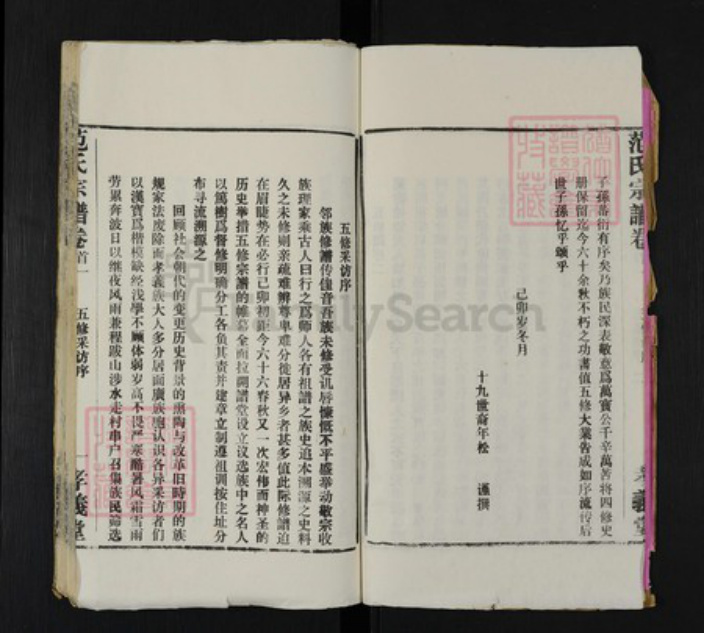 范氏宗譜卷
子孫蕃衍有序矣乃族民深表敬意爲萬寶公千辛萬苦将四修史
册保留迄今六十余秋不朽之功書值五修大業告成如序流传后
世子孫忆乎頌乎
己卯岁冬月
十九世裔年松 谨撰
義堂
五修采访序
邻族修譜传佳音吾族未修受讥唇慷慨不平盛举动敬宗收
族理家乘古人曰行之爲师人各有祖譜之族史追本溯源之史料
久之未修则亲疏难辨尊卑难分徙居异乡者甚多值此际修譜迫
在眉睫势在必行己卯初距今六十六春秋又一次宏伟而神圣的
历史举措五修宗譜的帷幕全面拉開譜堂设立议选族中之名人
以篤樹爲督修明确分工各负其责并建章立制遵祖训按住址分
布寻流溯源之
回顾社会朝代的变更历史背景的熏陶与改革旧時期的族
规家法废除而孝義族大人多分居面廣族胞认识各异采访者们
以漢寶爲楷模缺经浅學不顾体弱岁高不畏严寒酷暑风霜雪雨
劳累奔波日以继夜风雨兼程跋山涉水走村串户召集族民筛选
范氏宗譜卷首一
五修采访序
一 孝義堂
FamilySearch